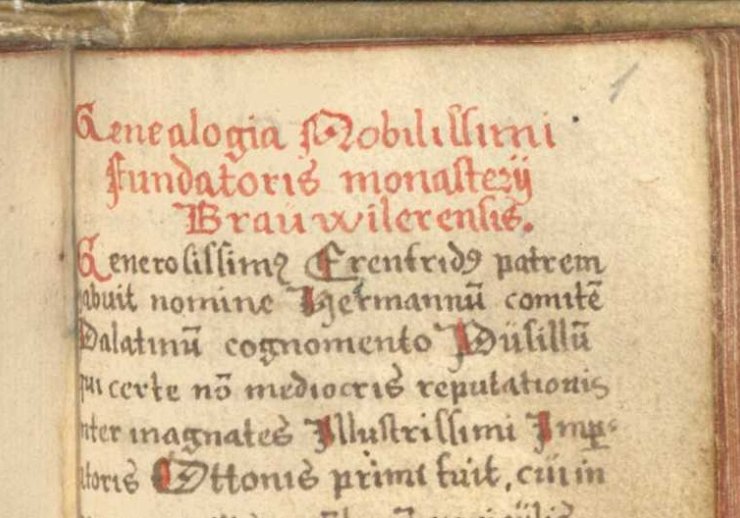 Genealogia Nobilissimi
fundatoris monasterij
Brauwilerensis.
Generosissimꝰ Erenfridꝰ patrem
abuit nomine Hermannū comitē
Palatinū cognomento Pusillū
qui certe nō mediocris reputationis
nter magnates Illustrissimi Imp̲
atoris Ottonis primi fuit, cui in